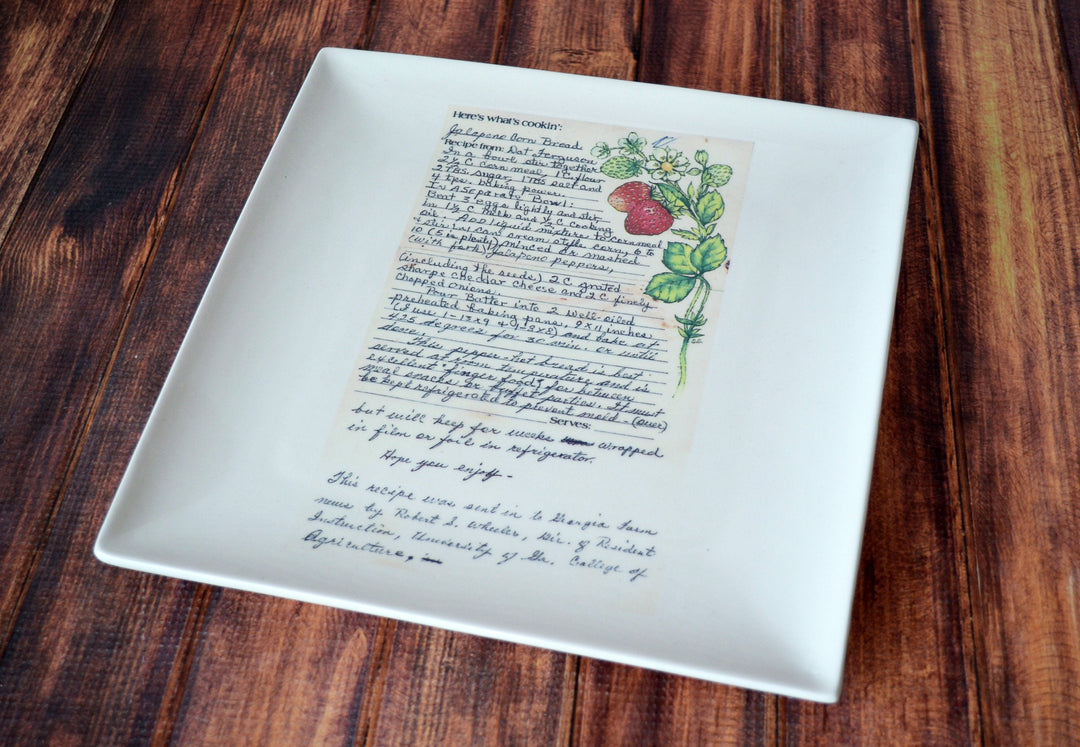 Here's what's cookin':
Jalapeno Corn Bread
Recipe from: Dot Ferguson
In a bowl stir together
2½ C corn meal, 1 C flour
2 Tbs. sugar, 1 Tbs salt and
4 tps. baking power.
In a separate Bowl:
Beat 3 eggs lightly and stir
in 1½ C milk and ½ C cooking
oil. Add liquid mixture to cornmeal
& stir in 1 can cream style corn, 6 to
10 (5 is plenty) minced or mashed
(with fork) Jalapeno peppers,
(including the seeds) 2 C grated
sharpe cheddar cheese and 2 C finely
chopped onions.
Pour Batter into 2 well-oiled
preheated baking pans, 9 x 11 inches,
(I use 1-13x9 & 1-8x8) and bake at
425 degrees for 30 min. or until
done.
This pepper-hot bread is best
served at room temperature and is
excellent "finger food" for between
meal snacks or buffet parties. It must
be kept refrigerated to prevent mold - (over)
Serves:
but will keep for weeks wrapped
in film or foil in refrigerator.
Hope you enjoy -
This recipe was sent in to Georgia Farm
news by Robert S. Wheeler, Dir. of Resident
Instruction, University of Ga. College of
Agriculture,